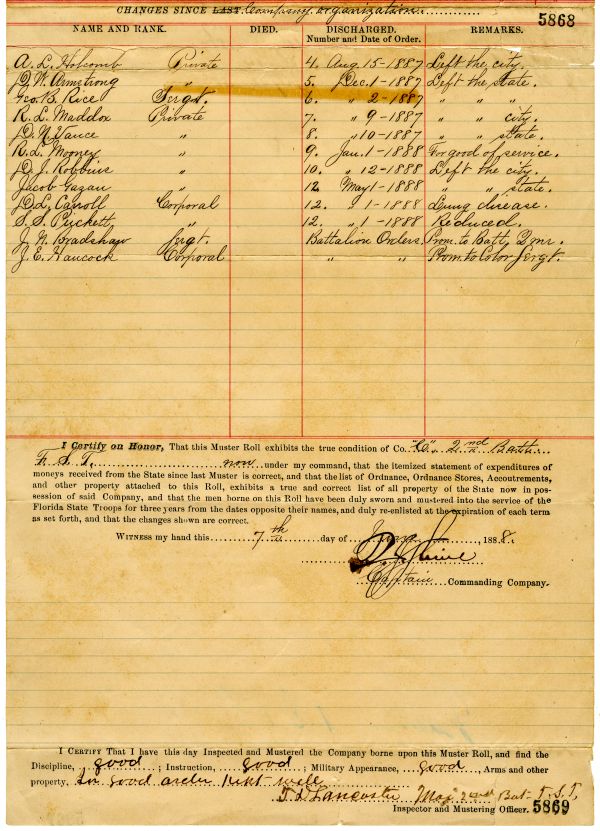 CHANGES SINCE LAST Company organization.
5868
NAME AND RANK. DIED. DISCHARGED. Number and Date of Order. REMARKS.
A. L. Holcomb Private 4. Aug. 15-1887 Left the city.
D. W. Armstrong " 5. Dec. 1-1887 Left the state.
Geo. B. Rice Sergt. 6. " 2-1887 " " "
R. L. Maddox Private 7. " 9-1887 " " city.
D. N. Vance " 8. " 10-1887 " " state.
R. L. Mooney " 9. Jan. 1-1888 For good of service.
D. J. Robbins " 10. " 12-1888 Left the city.
Jacob Gazan " 12. May 1-1888 " " state.
D. L. Carroll Corporal 12. " 1-1888 Lung disease.
S. S. Puckett " 12. " 1-1888 Reduced.
J. N. Bradshaw Sergt. Battalion Orders. Prom. to Batt. Dmr.
J. E. Hancock Corporal " " Prom. to Color Sergt.
I Certify on Honor, That this Muster Roll exhibits the true condition of Co. "C" 2nd Batt.
F. S. T. now under my command, that the itemized statement of expenditures of
moneys received from the State since last Muster is correct, and that the list of Ordnance, Ordnance Stores, Accoutrements,
and other property attached to this Roll, exhibits a true and correct list of all property of the State now in pos-
session of said Company, and that the men borne on this Roll have been duly sworn and mustered into the service of the
Florida State Troops for three years from the dates opposite their names, and duly re-enlisted at the expiration of each term
as set forth, and that the changes shown are correct.
WITNESS my hand this 7th day of 1888.
Shine
Captain Commanding Company.
I CERTIFY That I have this day Inspected and Mustered the Company borne upon this Muster Roll, and find the
Discipline, good; Instruction, good; Military Appearance, good, Arms and other
property, in good order kept well
T. D. Lancaster Maj 2nd Bat. F. S. T.
Inspector and Mustering Officer. 5869